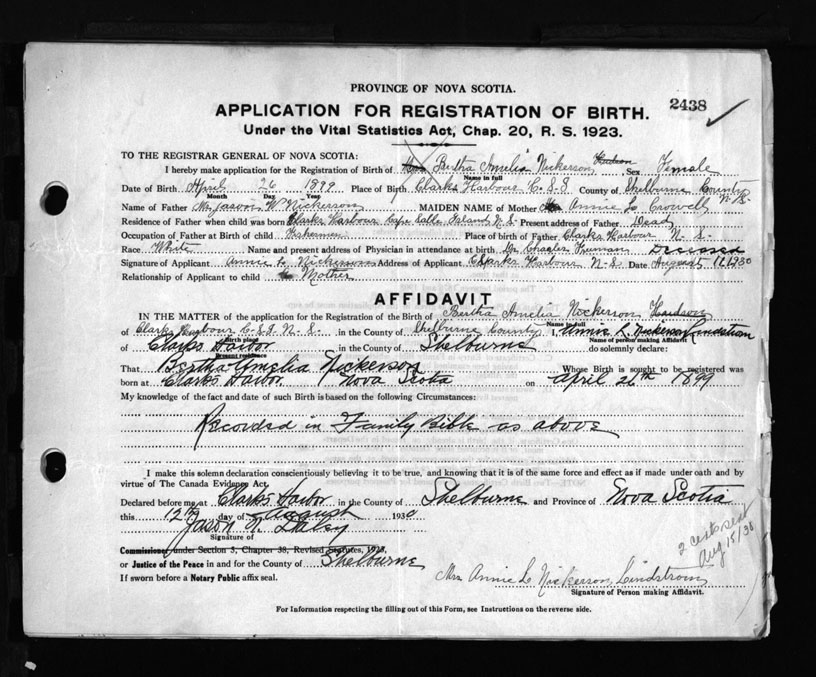 PROVINCE OF NOVA SCOTIA.
2438
APPLICATION FOR REGISTRATION OF BIRTH.
Under the Vital Statistics Act, Chap. 20, R. S. 1923.
TO THE REGISTRAR GENERAL OF NOVA SCOTIA:
I hereby make application for the Registration of Birth of Bertha Amelia Nickerson Hudson Sex Female
Name in full
Date of Birth April 26 1899 Place of Birth Clarks Harbour C.S.I. County of Shelburne County N.S.
Month Day Year
Name of Father Mr Jason W Nickerson MAIDEN NAME of Mother Annie L. Crowell
Residence of Father when child was born Clarks Harbour Cape Sable Island N.S. Present address of Father Dead
Occupation of Father at Birth of child Fisherman Place of birth of Father Clarks Harbour N.S.
Race White Name and present address of Physician in attendance at birth Dr. Freeman Deceased
Signature of Applicant Annie L. Nickerson Address of Applicant Clarks Harbour N.S. Date August 1930
Relationship of Applicant to child Mother
AFFIDAVIT
IN THE MATTER of the application for the Registration of the Birth of Bertha Amelia Nickerson Hudson
Name in full
of Clarks Harbour C.S.I. N.S. in the County of Shelburne County I, Annie L. Nickerson Lindstrom
Birth place
Name of person making Affidavit
of Clarks Harbor in the County of Shelburne do solemnly declare:
Present residence
That Bertha Amelia Nickerson Whose Birth is sought to be registered was
born at Clarks Harbor, Nova Scotia on April 26th 1899
My knowledge of the fact and date of such Birth is based on the following Circumstances:
Recorded in Family Bible as above
I make this solemn declaration conscientiously believing it to be true, and knowing that it is of the same force and effect as if made under oath and by
virtue of The Canada Evidence Act.
Declared before me at Clarks Harbor in the County of Shelburne and Province of Nova Scotia
this 12th day of August 1930
Jason
Signature of
Commissioner under Section 3, Chapter 38, Revised Statutes, 1923,
or Justice of the Peace in and for the County of Shelburne
If sworn before a Notary Public affix seal.
2 certs sent
Aug 15/30
Mrs Annie L. Nickerson Lindstrom
Signature of Person making Affidavit.
For Information respecting the filling out of this Form, see Instructions on the reverse side.